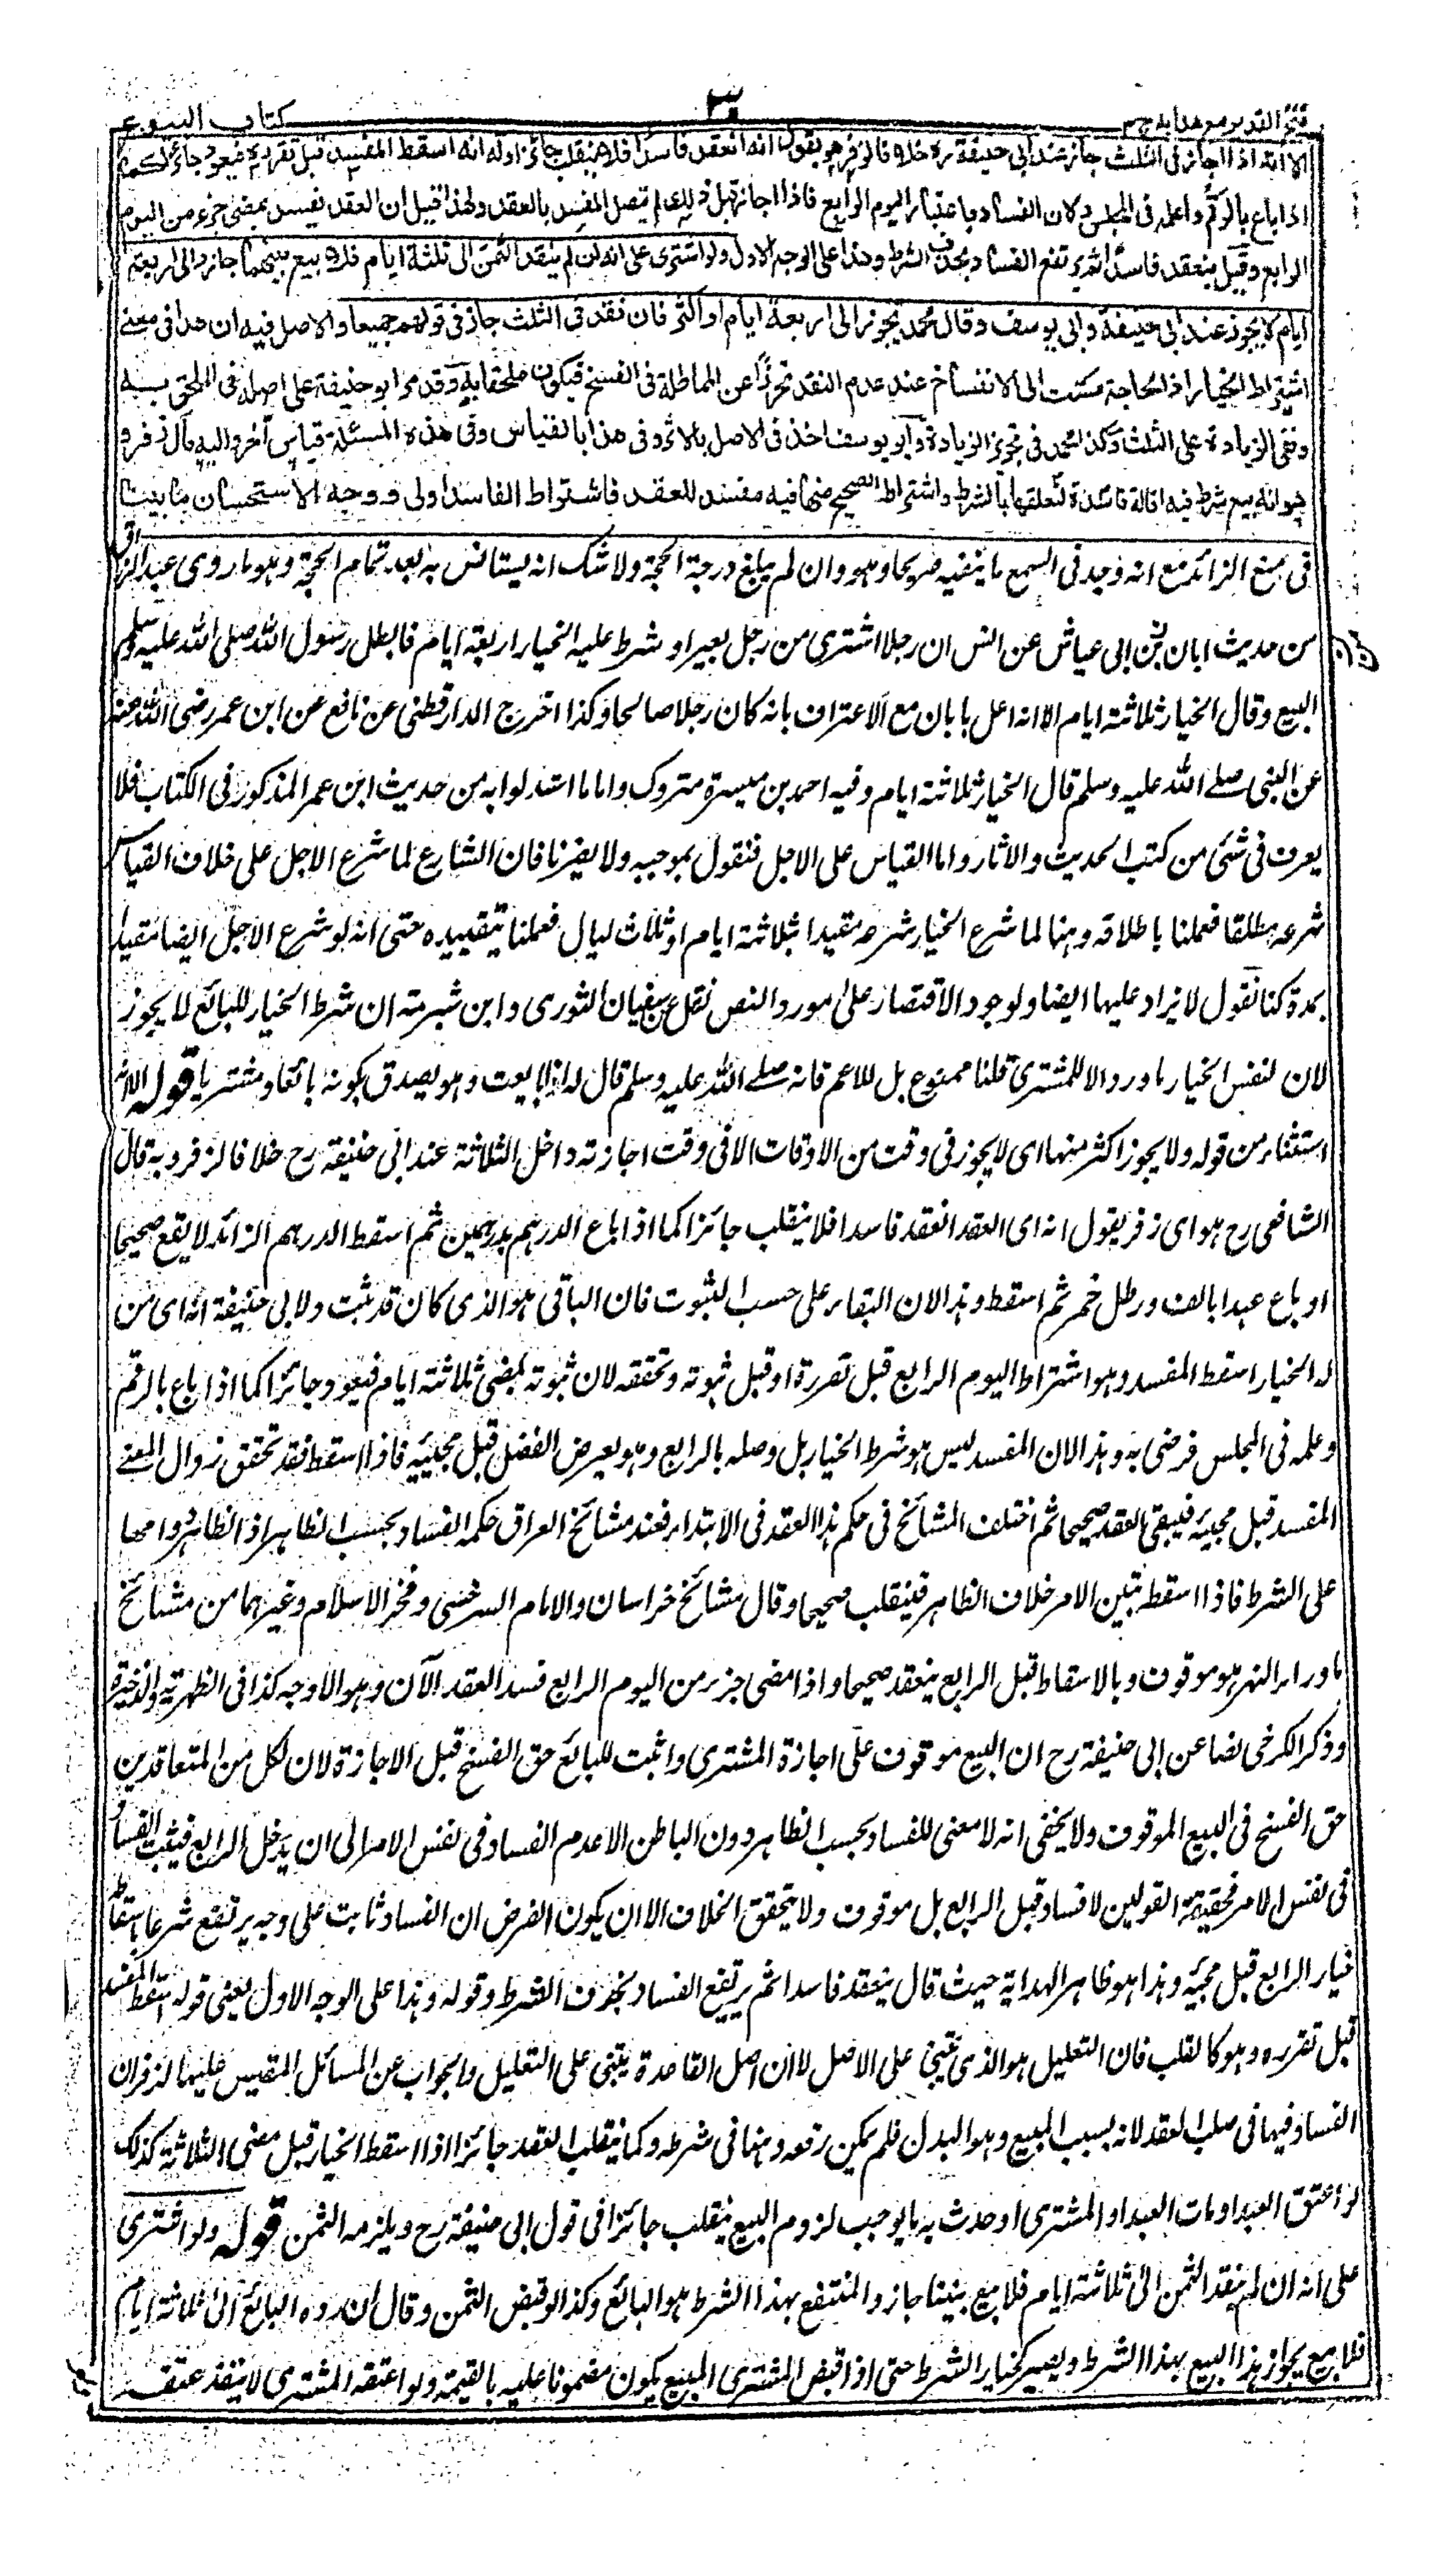 فتح القدير مع هدايه ج ٣
كتاب البيوع
الا انه اذا اجاز فى الثلث جاز عند ابى حنيفة ره خلافا لزفر هو يقول انه انعقد فاسدا فلا ينقلب جائزا وله انه اسقط المفسد قبل تقرره فيعود جائزا كما
اذا باع بالرقم واعلمه فى المجلس ولان الفساد باعتبار اليوم الرابع فاذا اجاز قبل ذلك لم يتصل المفسد بالعقد ولهذا قيل ان العقد يفسد بمضى جزء من اليوم
الرابع وقيل ينعقد فاسدا ثم يرتفع الفساد بحذف الشرط وهذا على الوجه الاول ولو اشترى على انه ان لم ينقد الثمن الى ثلثة ايام فلا بيع بينهما جاز والى اربعة
ايام لا يجوز عند ابى حنيفة وابى يوسف وقال محمد يجوز الى اربعة ايام او اكثر فان نقد فى الثلث جاز فى قولهم جميعا والاصل فيه ان هذا فى معنى
اشتراط الخيار اذ الحاجة مست الى الانفساخ عند عدم النقد تحرزا عن المماطلة فى الفسخ فيكون ملحقا به وقد مر ابو حنيفة على اصله فى الملحق به
ونفى الزيادة على الثلث وكذا محمد فى تجويز الزيادة وابو يوسف اخذ فى الاصل بالاثر وفى هذا بالقياس وفى هذه المسئلة قياس آخر واليه مال زفر و
هو انه بيع شرط فيه اقالة فاسدة لتعلقها بالشرط واشتراط الصحيح منها فيه مفسد للعقد فاشتراط الفاسد اولى ووجه الاستحسان ما بينا
فى منع الزائد مع انه وجد فى السمع ما ينفيه صريحا وهو وان لم يبلغ درجة الحجة ولا شك انه يستانس به بعد تمام الحجة وهو ما روى عبد الرزاق
من حديث ابان بن ابى عياش عن انس ان رجلا اشترى من رجل بعيرا وشرط عليه الخيار اربعة ايام فابطل رسول الله صلى الله عليه وسلم
البيع وقال الخيار ثلاثة ايام الا انه اعل بابان مع الاعتراف بانه كان رجلا صالحا وكذا اخرج الدارقطنى عن نافع عن ابن عمر رضى الله عنه
عن النبى صلے الله عليه وسلم قال الخيار ثلاثة ايام وفيه احمد بن ميسرة متروك واما ما استدلوا به من حديث ابن عمر المذكور فى الكتاب فلا
يعرف فى شئ من كتب الحديث والاثار واما القياس على الاجل فنقول بموجبه ولا يضرنا فان الشارع لما شرع الاجل على خلاف القياس
شرعه مطلقا فعملنا باطلاقه وهنا لما شرع الخيار شرعه مقيدا بثلاثة ايام او ثلاث ليال فعملنا بتقييده حتى انه لو شرع الاجل ايضا مقيدا
بمدة كنا نقول لا يزاد عليها ايضا ولوجود الاقتصار على مورد النص نقل عن سفيان الثورى وابن شبرمة ان شرط الخيار للبائع لا يجوز
لان لنفس الخيار ما ورد الا للمشترى قلنا ممنوع بل للاعم فانه صلے الله عليه وسلم قال له اذا بايعت وهو يصدق بكونه بائعا ومشتريا قوله الا انه
استثناء من قوله ولا يجوز اكثر منها اى لا يجوز فى وقت من الاوقات الا فى وقت اجازته داخل الثلاثة عند ابى حنيفة رح خلافا لزفر وبه قال
الشافعى رح هو اى زفر يقول انه اى العقد انعقد فاسدا فلا ينقلب جائزا كما اذا باع الدرهم بدرهمين ثم اسقط الدرهم الزائد لا يقع صحيحا
او باع عبدا بالف ورطل خمر ثم اسقط وهذا لان البقاء على حسب الثبوت فان الباقى هو الذى كان قد ثبت ولابى حنيفة انه اى من
له الخيار اسقط المفسد وهو اشتراط اليوم الرابع قبل تقرره او قبل ثبوته وتحققه لان ثبوته بمضى ثلاثة ايام فيعود جائزا كما اذا باع بالرقم
وعلمه فى المجلس فرضى به وهذا لان المفسد ليس هو شرط الخيار بل وصله بالرابع وهو بعرض الفصل قبل مجيئه فاذا اسقط فقد تحقق زوال المعنے
المفسد قبل مجيئه فيبقى العقد صحيحا ثم اختلف المشائخ فى حكم هذا العقد فى الابتداء فعند مشائخ العراق حكمه الفساد بحسب الظاهر اذ الظاهر دوامهما
على الشرط فاذا اسقط تبين الامر خلاف الظاهر فينقلب صحيحا وقال مشائخ خراسان والامام السرخسى وفخر الاسلام وغيرهما من مشائخ
ما وراء النهر هو موقوف وبالاسقاط قبل الرابع ينعقد صحيحا واذا مضى جزء من اليوم الرابع فسد العقد الآن وهو الاوجه كذا فى الظهيرية والذخيرة
وذكر الكرخى نصا عن ابى حنيفة رح ان البيع موقوف على اجازة المشترى واثبت للبائع حق الفسخ قبل الاجازة لان لكل من المتعاقدين
حق الفسخ فى البيع الموقوف ولا يخفى انه لا معنى للفساد بحسب الظاهر دون الباطن الا عدم الفساد فى نفس الامر الى ان يدخل الرابع فيثبت الفساد
فى نفس الامر فحقيقة القولين لا فساد قبل الرابع بل موقوف ولا يتحقق الخلاف الا ان يكون الفرض ان الفساد ثابت على وجه يرتفع شرعا باسقاط
خيار الرابع قبل مجيئه وهذا هو ظاهر الهداية حيث قال ينعقد فاسدا ثم يرتفع الفساد بحذف الشرط وقوله وهذا على الوجه الاول يعنى قوله اسقط المفسد
قبل تقرره وهو كالقلب فان التعليل هو الذى يبتنى على الاصل لا ان اصل القاعدة يبتنى على التعليل والجواب عن المسائل المقيس عليها لزفر ان
الفساد فيها فى صلب العقد لانه بسبب المبيع وهو البدل فلم يمكن رفعه وهنا فى شرطه وكما ينقلب العقد جائزا اذا اسقط الخيار قبل مضى الثلاثة كذلك
لو اعتق العبد او مات العبد او المشترى او حدث به ما يوجب لزوم البيع ينقلب جائزا فى قول ابى حنيفة رح ويلزمه الثمن قوله ولو اشترى
على انه ان لم ينقد الثمن الى ثلاثة ايام فلا بيع بيننا جاز والمنتفع بهذا الشرط هو البائع وكذا لو قبض الثمن وقال ان رده البائع الى ثلاثة ايام
فلا بيع يجوز هذا البيع بهذا الشرط ويصير كخيار الشرط حتى اذا قبض المشترى المبيع يكون مضمونا عليه بالقيمة ولو اعتقه المشترى لا ينفذ عتقه